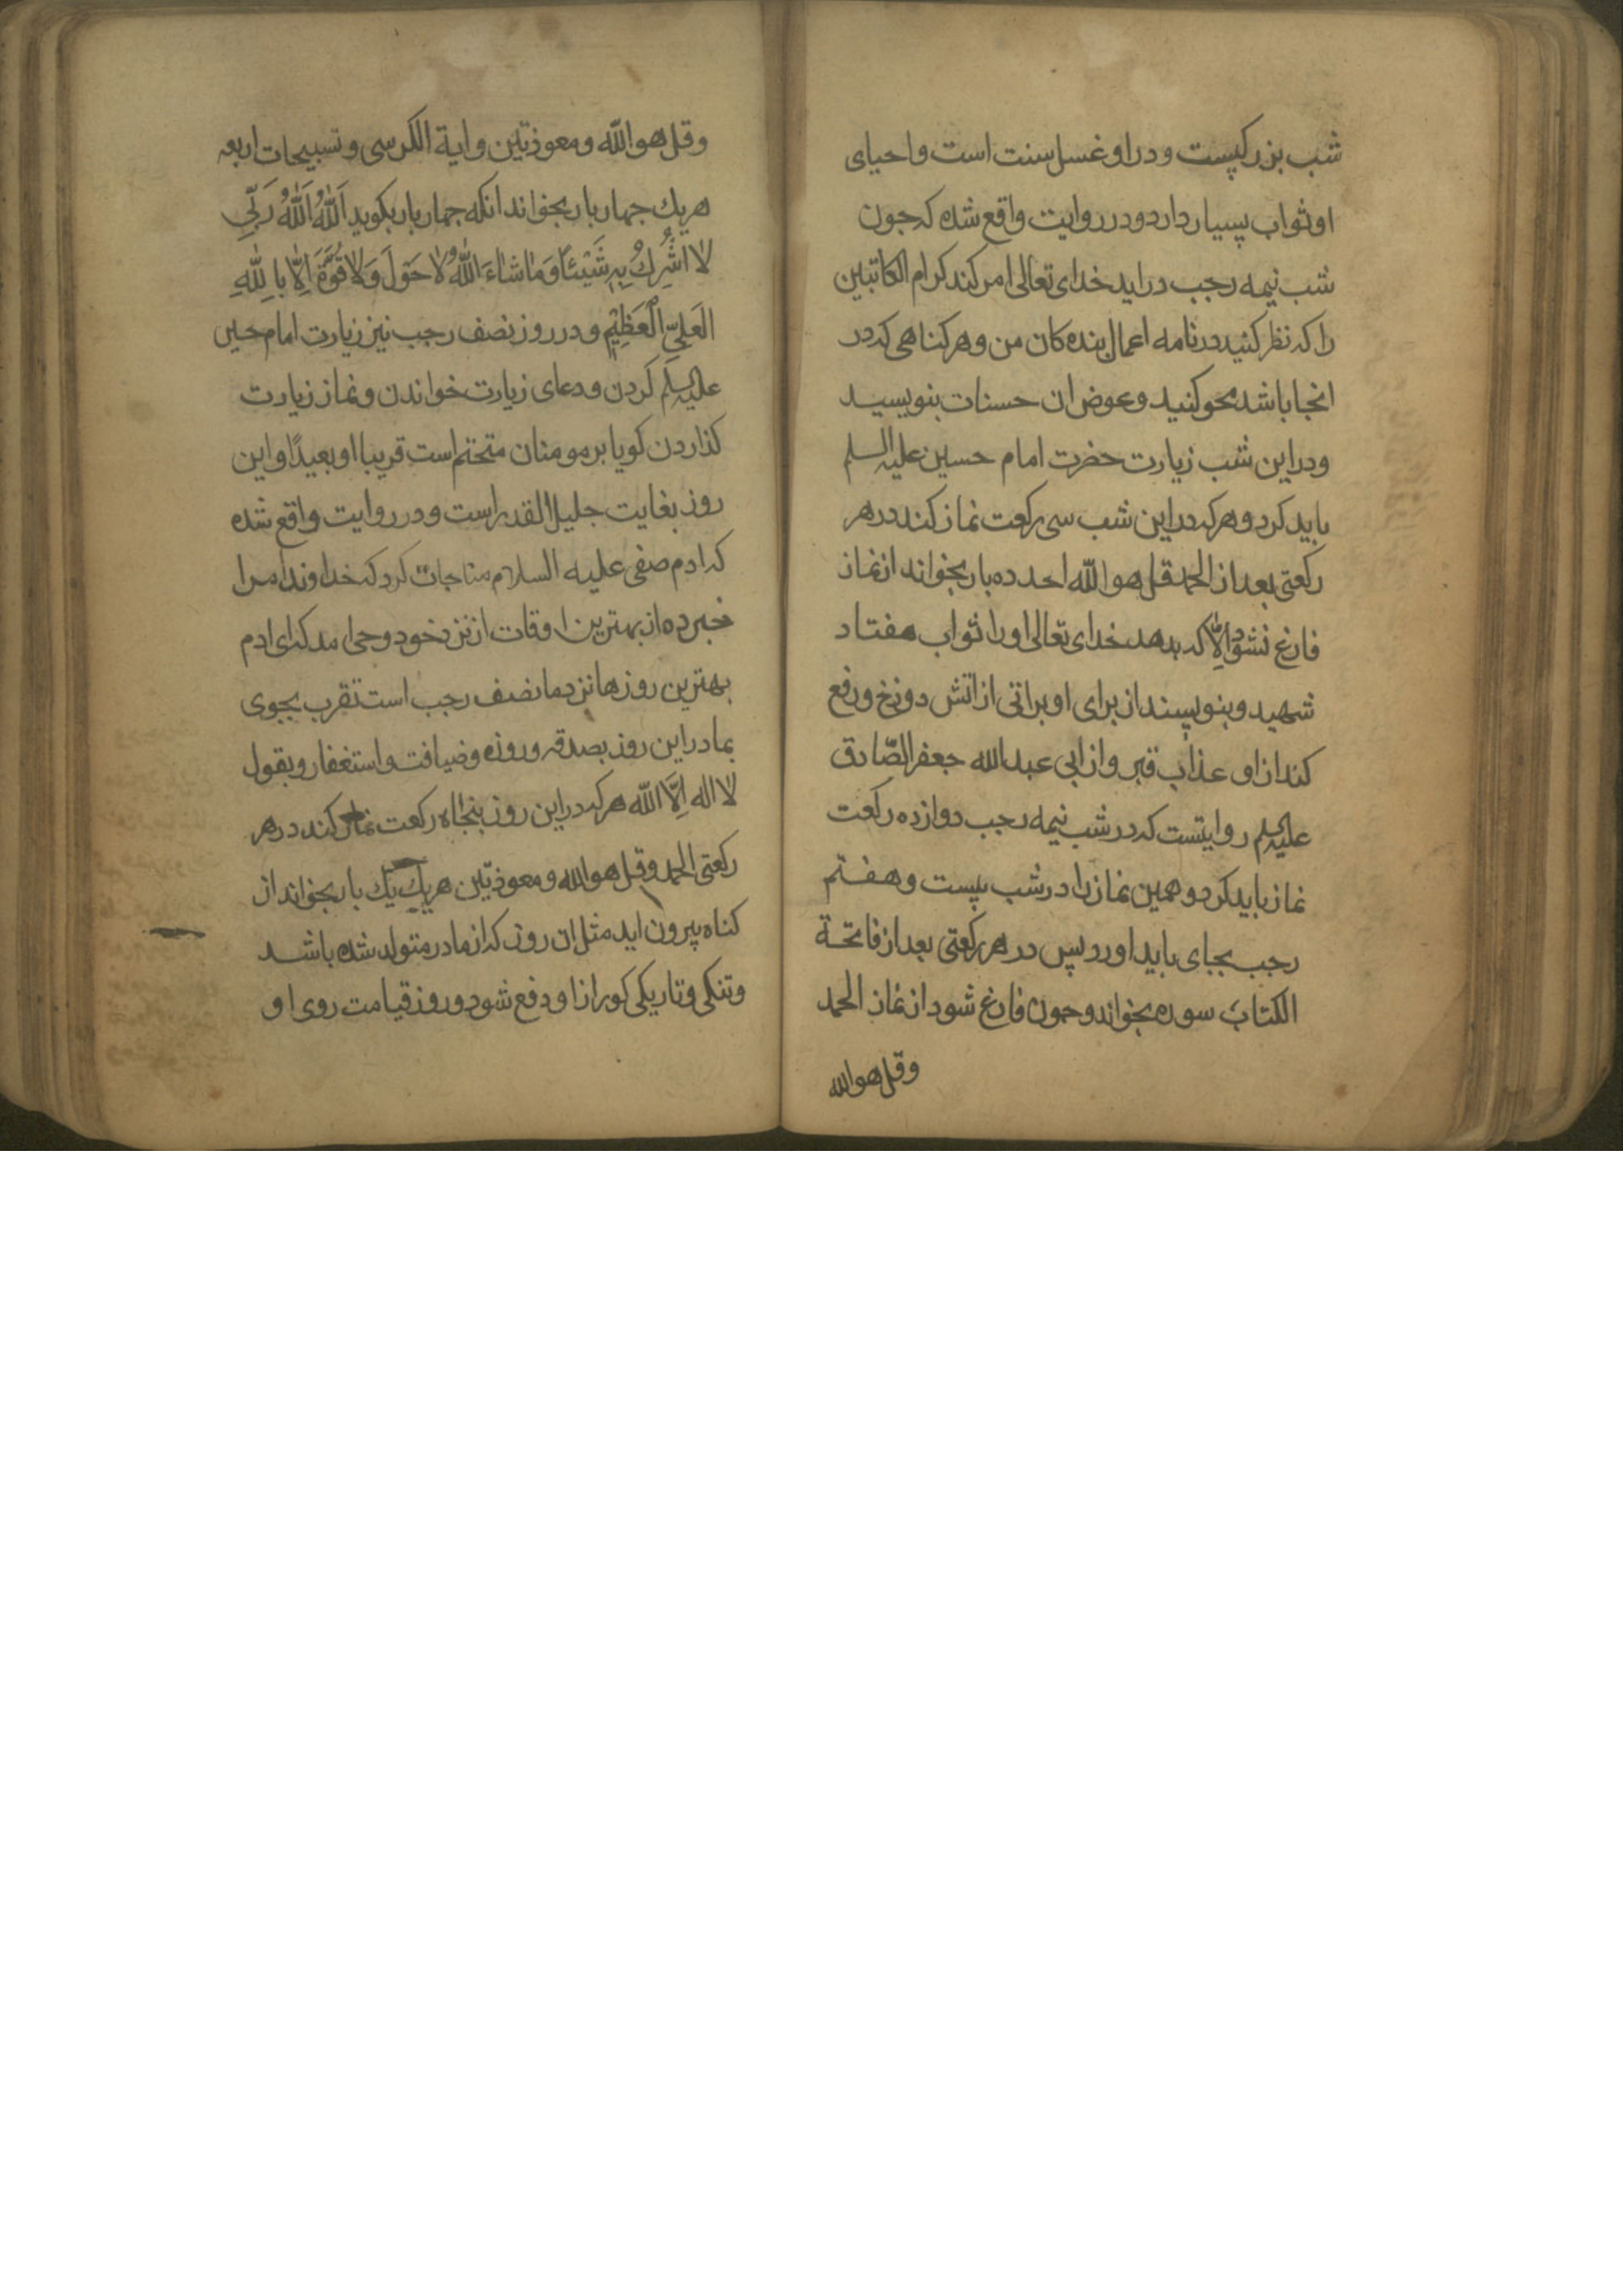 شب بزرکیست و در او غسل سنت است و احیای
او ثواب بسیار دارد و در روایت واقع شده که جون
شب نیمه رجب در اید خدای تعالی امر کند کرام الکاتبین
را که نظر کنید در نامه اعمال بنده کان من و هر کناهی که در
انجا باشد محو کنید و عوض ان حسنات بنویسید
و در این شب زیارت حضرت امام حسین علیه السلم
باید کرد و هر که در این شب سی رکعت نماز کند در هر
رکعتی بعد از الحمد قل هو اللّه احد ده بار بخواند از نماز
فارغ نشود الّا که بدهد خدای تعالی او را ثواب هفتاد
شهید و بنویسند از برای او براتی از اتش دوزخ و رفع
کند از او عذاب قبر و از ابی عبد الله جعفر الصّادق
علیه السلم روایتست که در شب نیمه رجب دوازده رکعت
نماز باید کرد و همین نماز را در شب بیست و هفتم
رجب بجای باید اورد پس در هر رکعتی بعد از فاتحة
الکتاب سوره بخواند و جون فارغ شود از نماز الحمد
و قل هو الله
و قل هو اللّه و معوذتین و ایة الکرسی و تسبیحات اربعه
هر یك جهار بار بخواند انکه جهار بار بکوید اَللّٰهُ اَللّٰهُ رَبّی
لا اُشْرِكُ بِهِ شَیْئًا وَ مٰا شٰاءَ اللّٰهُ لا حَوْلَ وَ لا قُوَّةَ اِلّا بِاللّٰهِ
الْعَلِیِّ الْعَظِیْمِ و در روز نصف رجب نیز زیارت امام حسین
علیه السلم کردن و دعای زیارت خواندن و نماز زیارت
کذاردن کویا بر مومنان متحتم است قریبا او بعیدًا و این
روز بغایت جلیل القدر است و در روایت واقع شده
که ادم صفی علیه السلام مناجات کرد که خداوندا مرا
خبر ده از بهترین اوقات از نزد خود وحی امد که ای ادم
بهترین روزها نزد ما نصف رجب است تقرب بجوی
بما در این روز بصدقه و روزه و ضیافت و استغفار و بقول
لا اله اِلَّا اللّٰه هر که در این روز پنجاه رکعت نماز کند در هر
رکعتی الحمد و قل هو الله و معوذتین هر یك یك بار بخواند از
کناه بیرون اید مثل ان روز که از مادر متولد شده باشد
و تنکی و تاریکی کور از او دفع شود و روز قیامت روی او